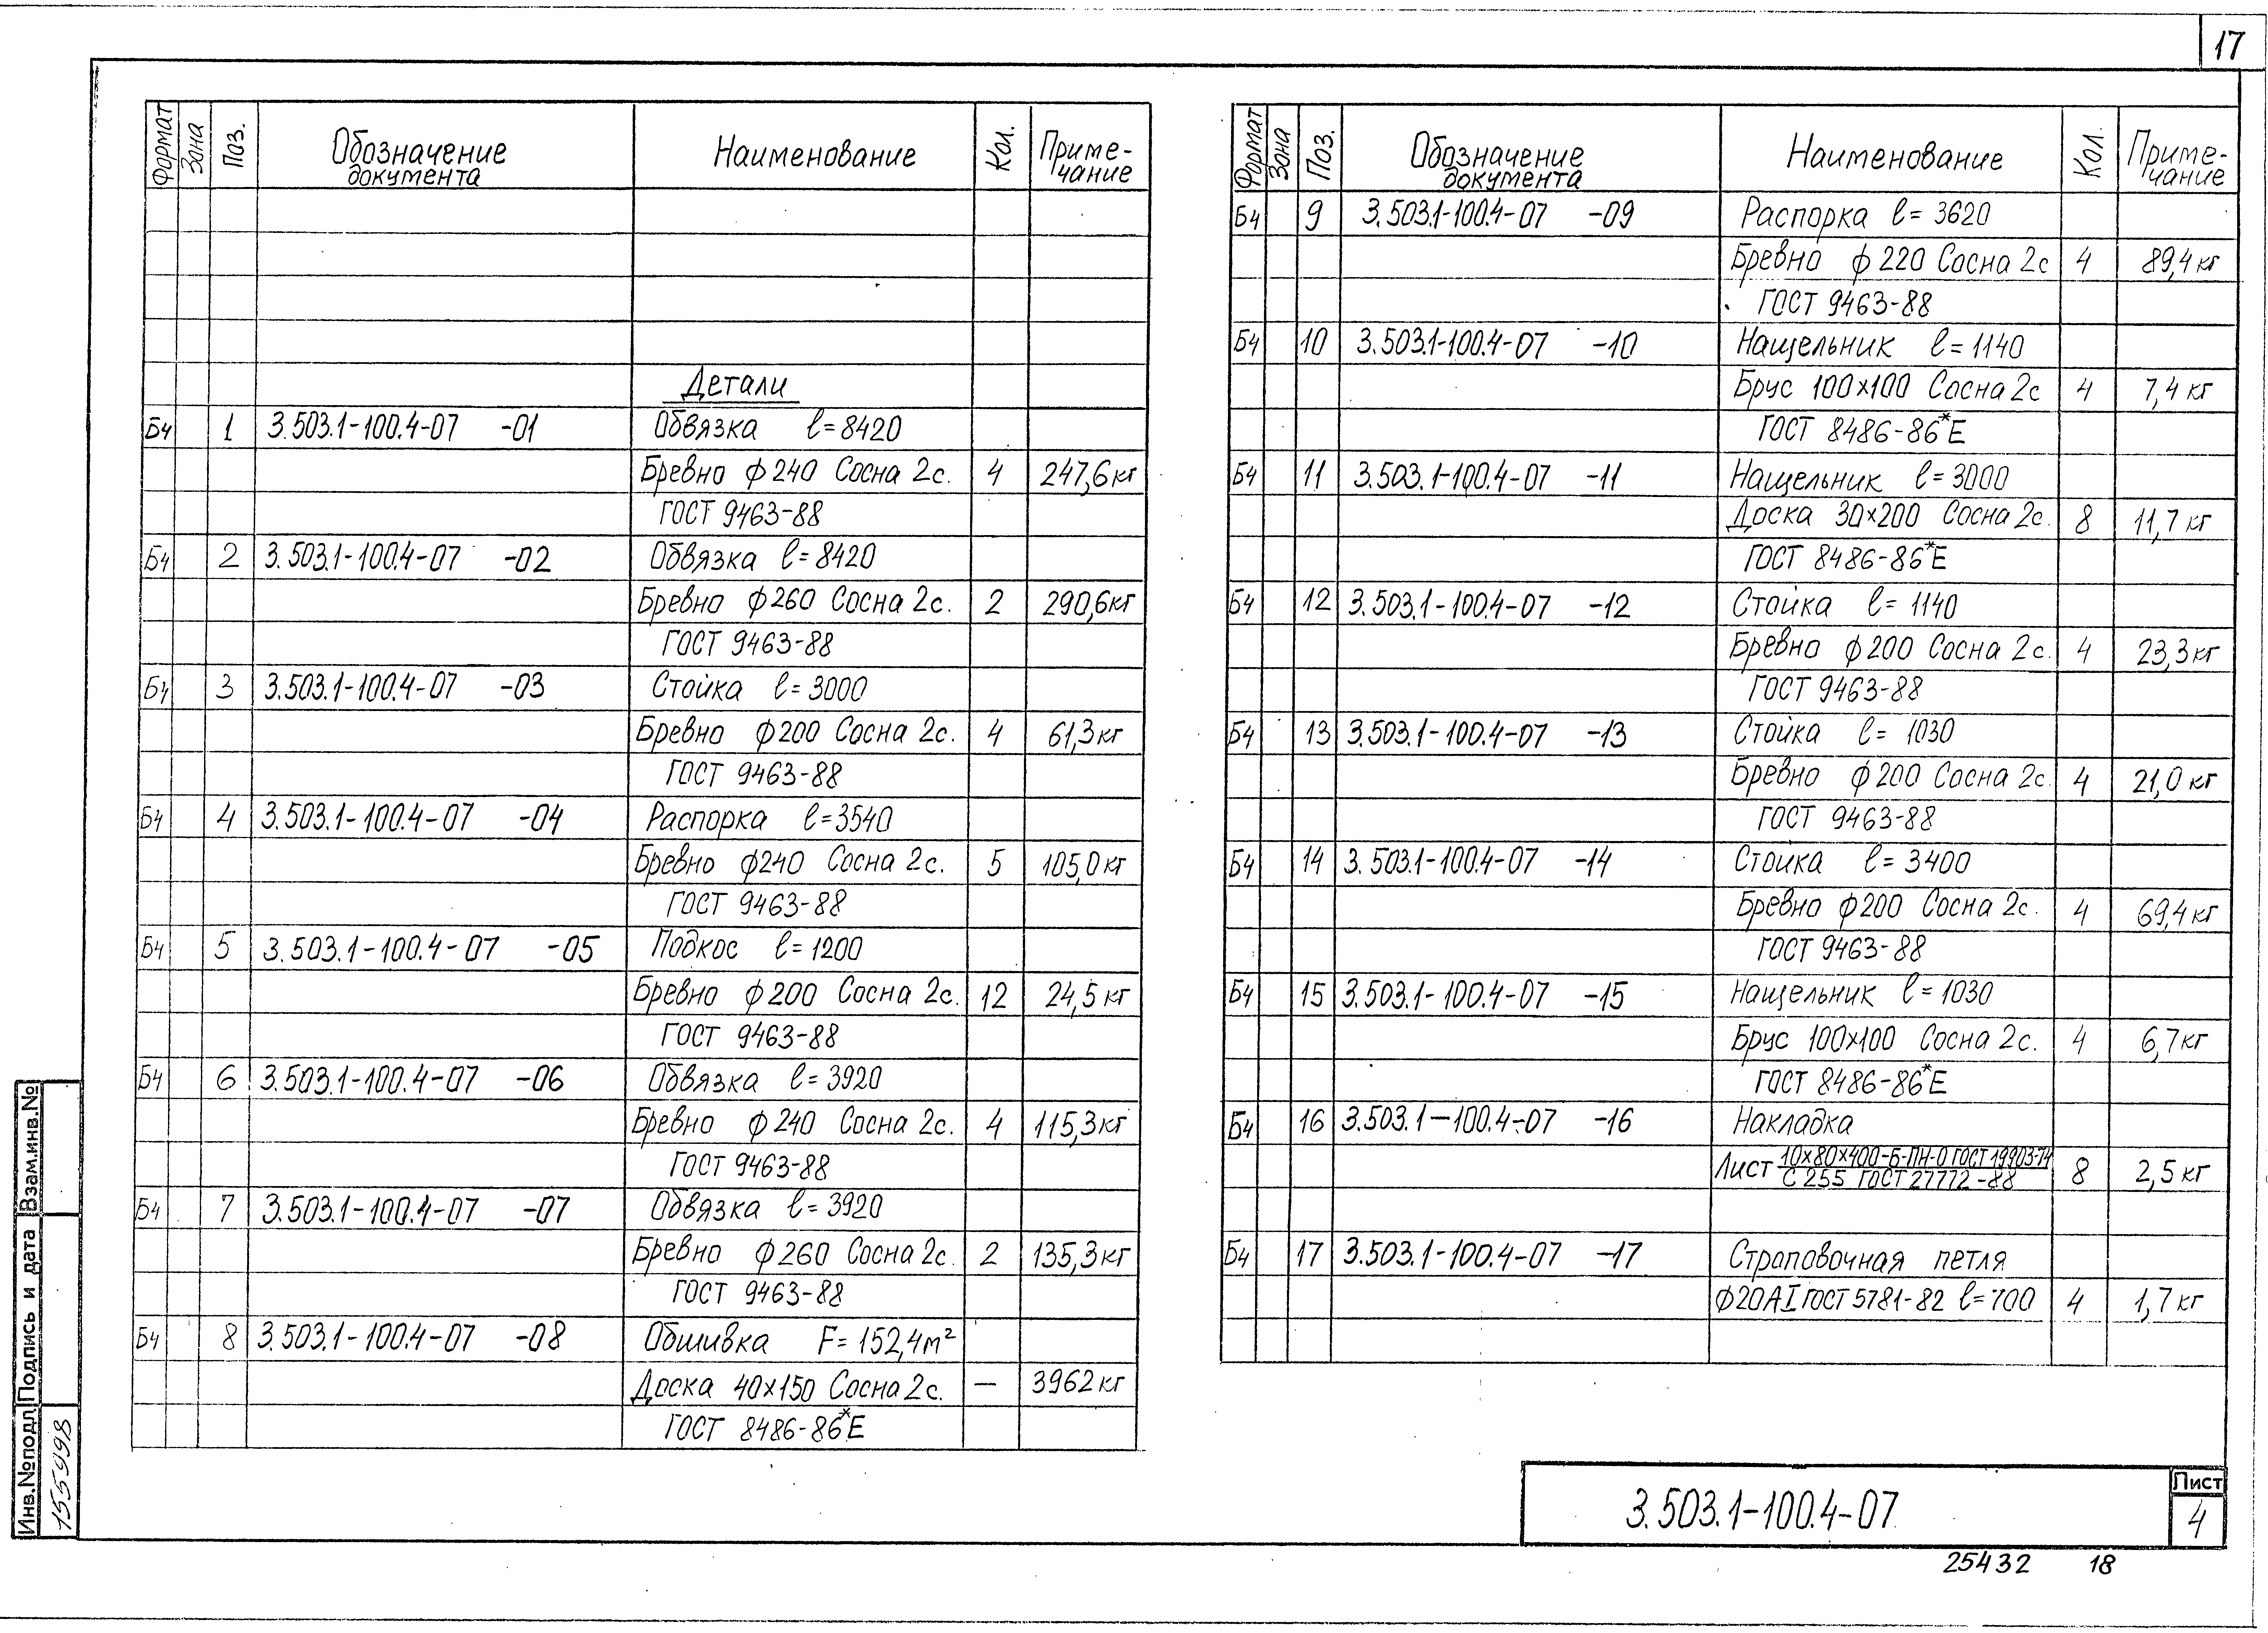 17
Формат Зона Поз. Обозначение документа Наименование Кол. Приме-чание
Детали
Б4 1 3.503.1-100.4-07 -01 Обвязка l=8420
Бревно ф240 Сосна 2с. 4 247,6кг
ГОСТ 9463-88
Б4 2 3.503.1-100.4-07 -02 Обвязка l=8420
Бревно ф260 Сосна 2с. 2 290,6кг
ГОСТ 9463-88
Б4 3 3.503.1-100.4-07 -03 Стойка l=3000
Бревно ф200 Сосна 2с. 4 61,3кг
ГОСТ 9463-88
Б4 4 3.503.1-100.4-07 -04 Распорка l=3540
Бревно ф240 Сосна 2с. 5 105,0кг
ГОСТ 9463-88
Б4 5 3.503.1-100.4-07 -05 Подкос l=1200
Бревно ф200 Сосна 2с. 12 24,5кг
ГОСТ 9463-88
Б4 6 3.503.1-100.4-07 -06 Обвязка l=3920
Бревно ф240 Сосна 2с. 4 115,3кг
ГОСТ 9463-88
Б4 7 3.503.1-100.4-07 -07 Обвязка l=3920
Бревно ф260 Сосна 2с. 2 135,3кг
ГОСТ 9463-88
Б4 8 3.503.1-100.4-07 -08 Обшивка F=152,4м²
Доска 40х150 Сосна 2с. — 3962кг
ГОСТ 8486-86*Е
Формат Зона Поз. Обозначение документа Наименование Кол. Приме-чание
Б4 9 3.503.1-100.4-07 -09 Распорка l=3620
Бревно ф220 Сосна 2с 4 89,4кг
ГОСТ 9463-88
Б4 10 3.503.1-100.4-07 -10 Нащельник l=1140
Брус 100х100 Сосна 2с 4 7,4кг
ГОСТ 8486-86*Е
Б4 11 3.503.1-100.4-07 -11 Нащельник l=3000
Доска 30х200 Сосна 2с. 8 11,7кг
ГОСТ 8486-86*Е
Б4 12 3.503.1-100.4-07 -12 Стойка l=1140
Бревно ф200 Сосна 2с. 4 23,3кг
ГОСТ 9463-88
Б4 13 3.503.1-100.4-07 -13 Стойка l=1030
Бревно ф200 Сосна 2с. 4 21,0кг
ГОСТ 9463-88
Б4 14 3.503.1-100.4-07 -14 Стойка l=3400
Бревно ф200 Сосна 2с. 4 69,4кг
ГОСТ 9463-88
Б4 15 3.503.1-100.4-07 -15 Нащельник l=1030
Брус 100х100 Сосна 2с. 4 6,7кг
ГОСТ 8486-86*Е
Б4 16 3.503.1-100.4-07 -16 Накладка
Лист 10х80х400-Б-ПН-О ГОСТ 19903-74
С 255 ГОСТ 27772-88 8 2,5кг
Б4 17 3.503.1-100.4-07 -17 Строповочная петля
Ф20АI ГОСТ 5781-82 l=700 4 1,7кг
Инв.№подл Подпись и дата Взам.инв.№
155999В
3.503.1-100.4-07
Лист
4
25432 18